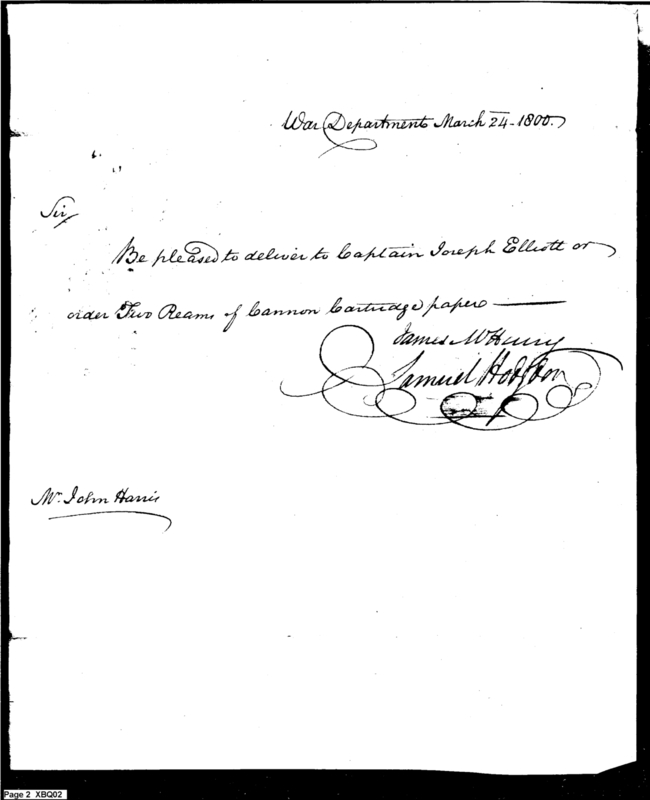 War Department March 24 - 1800.
Sir,
Be pleased to deliver to Captain Joseph Elliott or
order Two Reams of Cannon Cartridge paper
James McHenry
Samuel Hodgdon
Mr. John Harris
Page 2 XBQ02